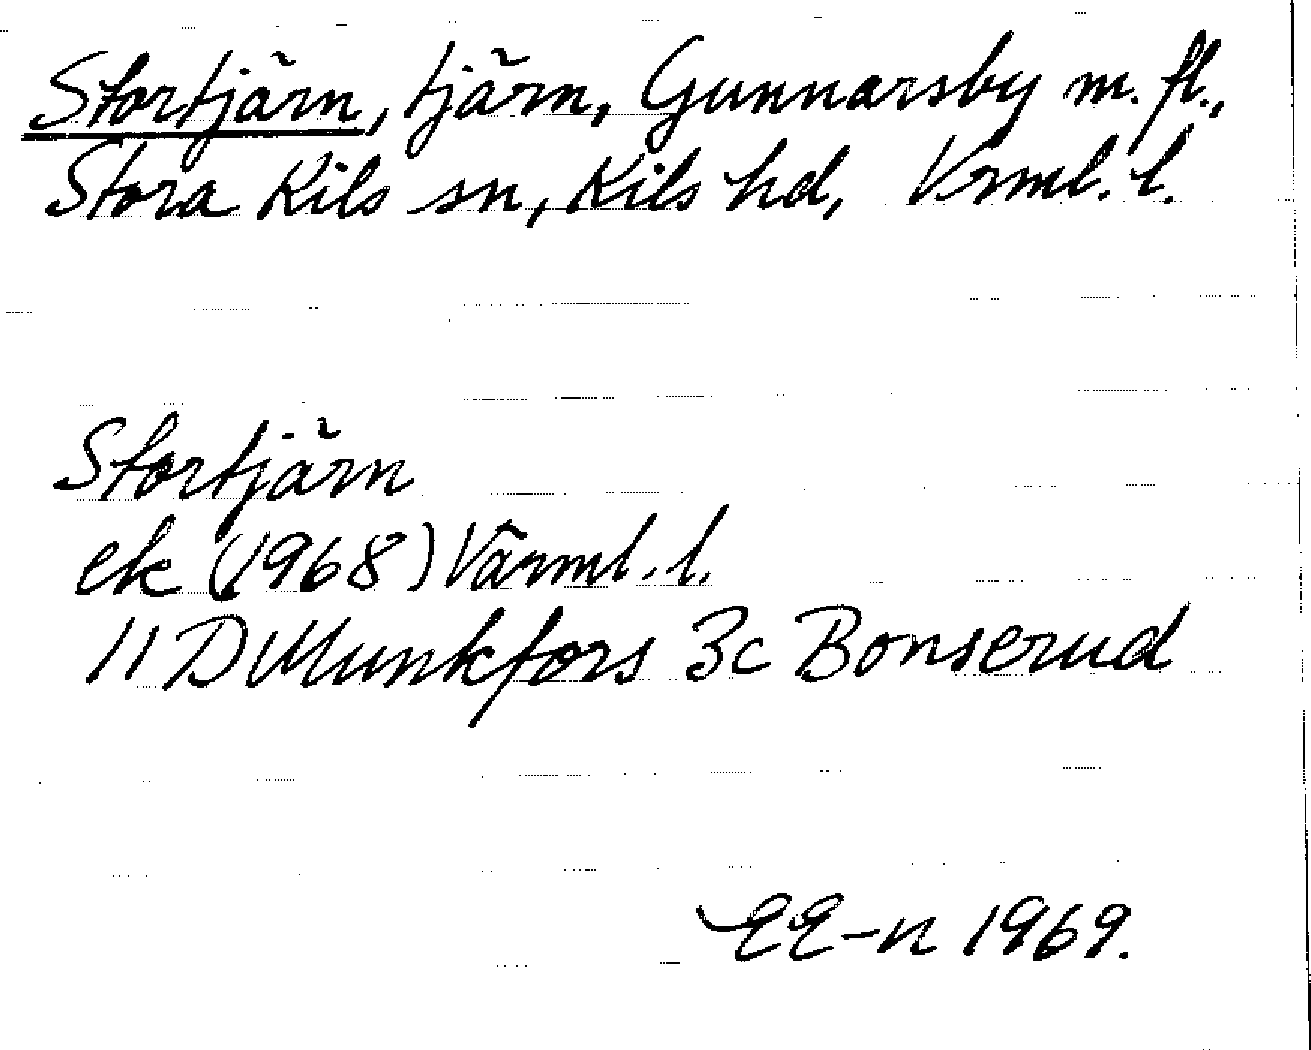 Stortjärn, tjärn, Gunnarsby m. fl.,
Stora Kils sn, Kils hd, Vrml. l.
Stortjärn
ek (1968) Värml. l.
11 D Munkfors 3c Bonserud
EE-n 1969.